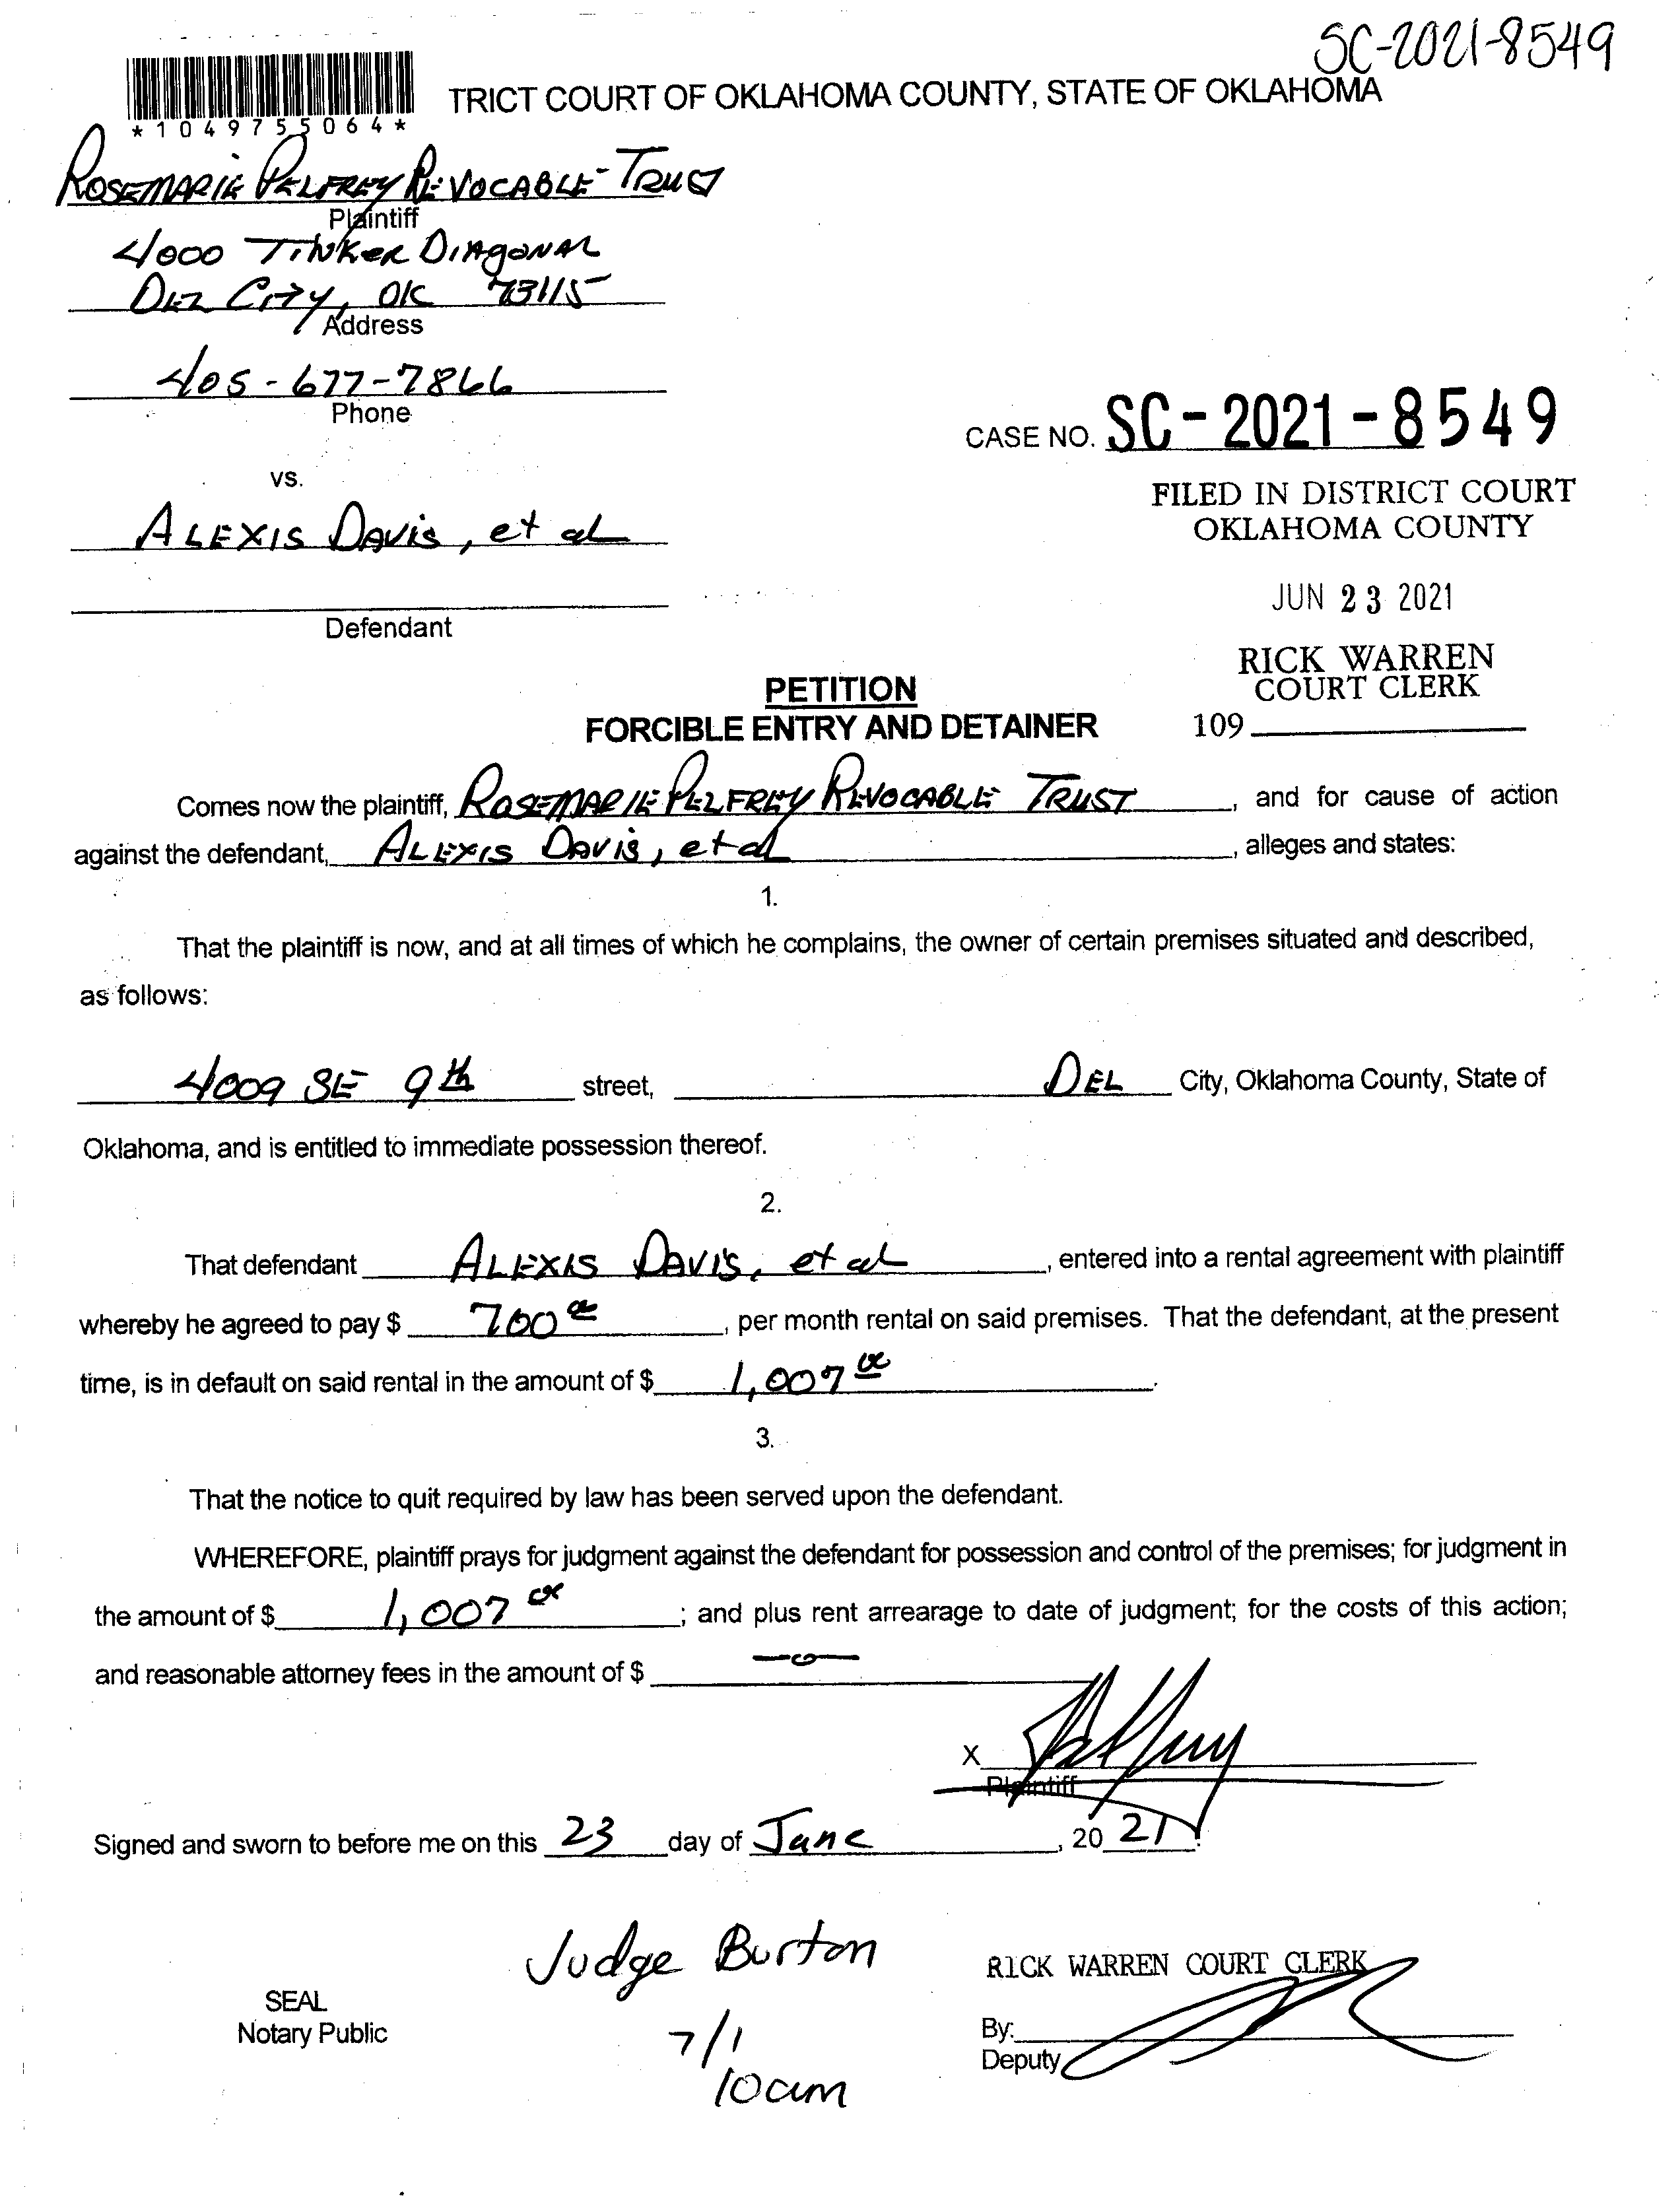 SC-2021-8549
TRICT COURT OF OKLAHOMA COUNTY, STATE OF OKLAHOMA
*1049755064*
ROSEMARIE PELFREY REVOCABLE TRUST
Plaintiff
4000 TINKER DIAGONAL
DEL CITY, OK 73115
Address
405-677-7866
Phone
CASE NO. SC-2021-8549
vs.
FILED IN DISTRICT COURT
OKLAHOMA COUNTY
ALEXIS DAVIS, et al
JUN 23 2021
Defendant
RICK WARREN
COURT CLERK
109
PETITION
FORCIBLE ENTRY AND DETAINER
Comes now the plaintiff, ROSEMARIE PELFREY REVOCABLE TRUST, and for cause of action
against the defendant, ALEXIS DAVIS, et al, alleges and states:
1.
That the plaintiff is now, and at all times of which he complains, the owner of certain premises situated and described,
as follows:
4009 SE 9th street, DEL City, Oklahoma County, State of
Oklahoma, and is entitled to immediate possession thereof.
2.
That defendant ALEXIS DAVIS, et al, entered into a rental agreement with plaintiff
whereby he agreed to pay $ 700 00, per month rental on said premises. That the defendant, at the present
time, is in default on said rental in the amount of $ 1,007 00.
3.
That the notice to quit required by law has been served upon the defendant.
WHEREFORE, plaintiff prays for judgment against the defendant for possession and control of the premises; for judgment in
the amount of $ 1,007 00; and plus rent arrearage to date of judgment; for the costs of this action;
and reasonable attorney fees in the amount of $ -0-
X
Plaintiff
Signed and sworn to before me on this 23 day of June, 20 21.
Judge Burton
7/1
10am
SEAL
Notary Public
RICK WARREN COURT CLERK
By:
Deputy